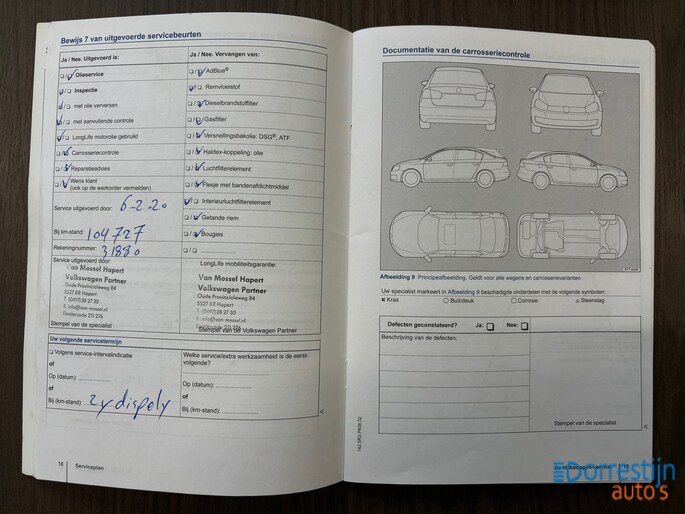 Bewijs 7 van uitgevoerde servicebeurten
Ja / Nee. Uitgevoerd is:
Olieservice
Inspectie
met olie verversen
met aanvullende controle
LongLife motorolie gebruikt
Carrosseriecontrole
Reparatieadvies
Wens klant
(ook op de werkorder vermelden)
Service uitgevoerd door: 6-2-20
Bij km-stand: 104727
Rekeningnummer: 31880
Service uitgevoerd door:
Van Mossel Hapert
Volkswagen Partner
Oude Provincialeweg 84
5527 BR Hapert
T. (0497) 38 27 30
E. info@van-mossel.nl
Dealercode 211 276
Stempel van de specialist
Ja / Nee. Vervangen van:
AdBlue®
Remvloeistof
Dieselbrandstoffilter
Gasfilter
Versnellingsbakolie: DSG®, ATF
Haldex-koppeling: olie
Luchtfilterelement
Flesje met bandenafdichtmiddel
Interieurluchtfilterelement
Getande riem
Bougies
/
LongLife mobiliteitsgarantie:
Van Mossel Hapert
Volkswagen Partner
Oude Provincialeweg 84
5527 BR Hapert
T. (0497) 38 27 30
E. info@van-mossel.nl
Dealercode 211 276
Stempel van de Volkswagen Partner
Uw volgende servicetermijn
Volgens service-intervalindicatie
of
Op (datum):
of
Bij (km-stand):
Welke service/extra werkzaamheid is de eerst-
volgende?
Op (datum):
of
Bij (km-stand):
18 Serviceplan
Documentatie van de carrosseriecontrole
Afbeelding 9 Principeafbeelding. Geldt voor alle wagens en carrosserievarianten
Uw specialist markeert in Afbeelding 9 beschadigde onderdelen met de volgende symbolen:
× Kras ○ Buil/deuk □ Corrosie △ Steenslag
Defecten geconstateerd? Ja: Nee:
Beschrijving van de defecten:
Stempel van de specialist
Dorrestijn
auto's